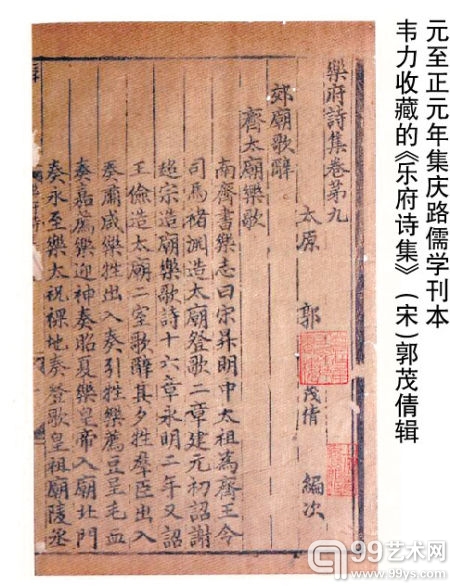 元至正元年集庆路儒学刊本
韦力收藏的《乐府诗集》(宋)郭茂倩辑
樂府詩集卷第九
太原 郭 茂倩 編次
郊廟歌辭
齊太廟樂歌
南齊書樂志曰宋昇明中太祖爲齊王令
司馬褚淵造太廟登歌二章建元初詔謝
超宗造廟樂歌詩十六章永明二年又詔
王儉造太廟二室歌辭其夕牲羣臣出入
奏肅咸樂牲出入奏引牲樂薦豆呈毛血
奏嘉薦樂迎神奏昭夏樂皇帝入廟北門
奏永至樂太祝祼地奏登歌皇祖廟陵丞
99艺术网
www.99ys.com